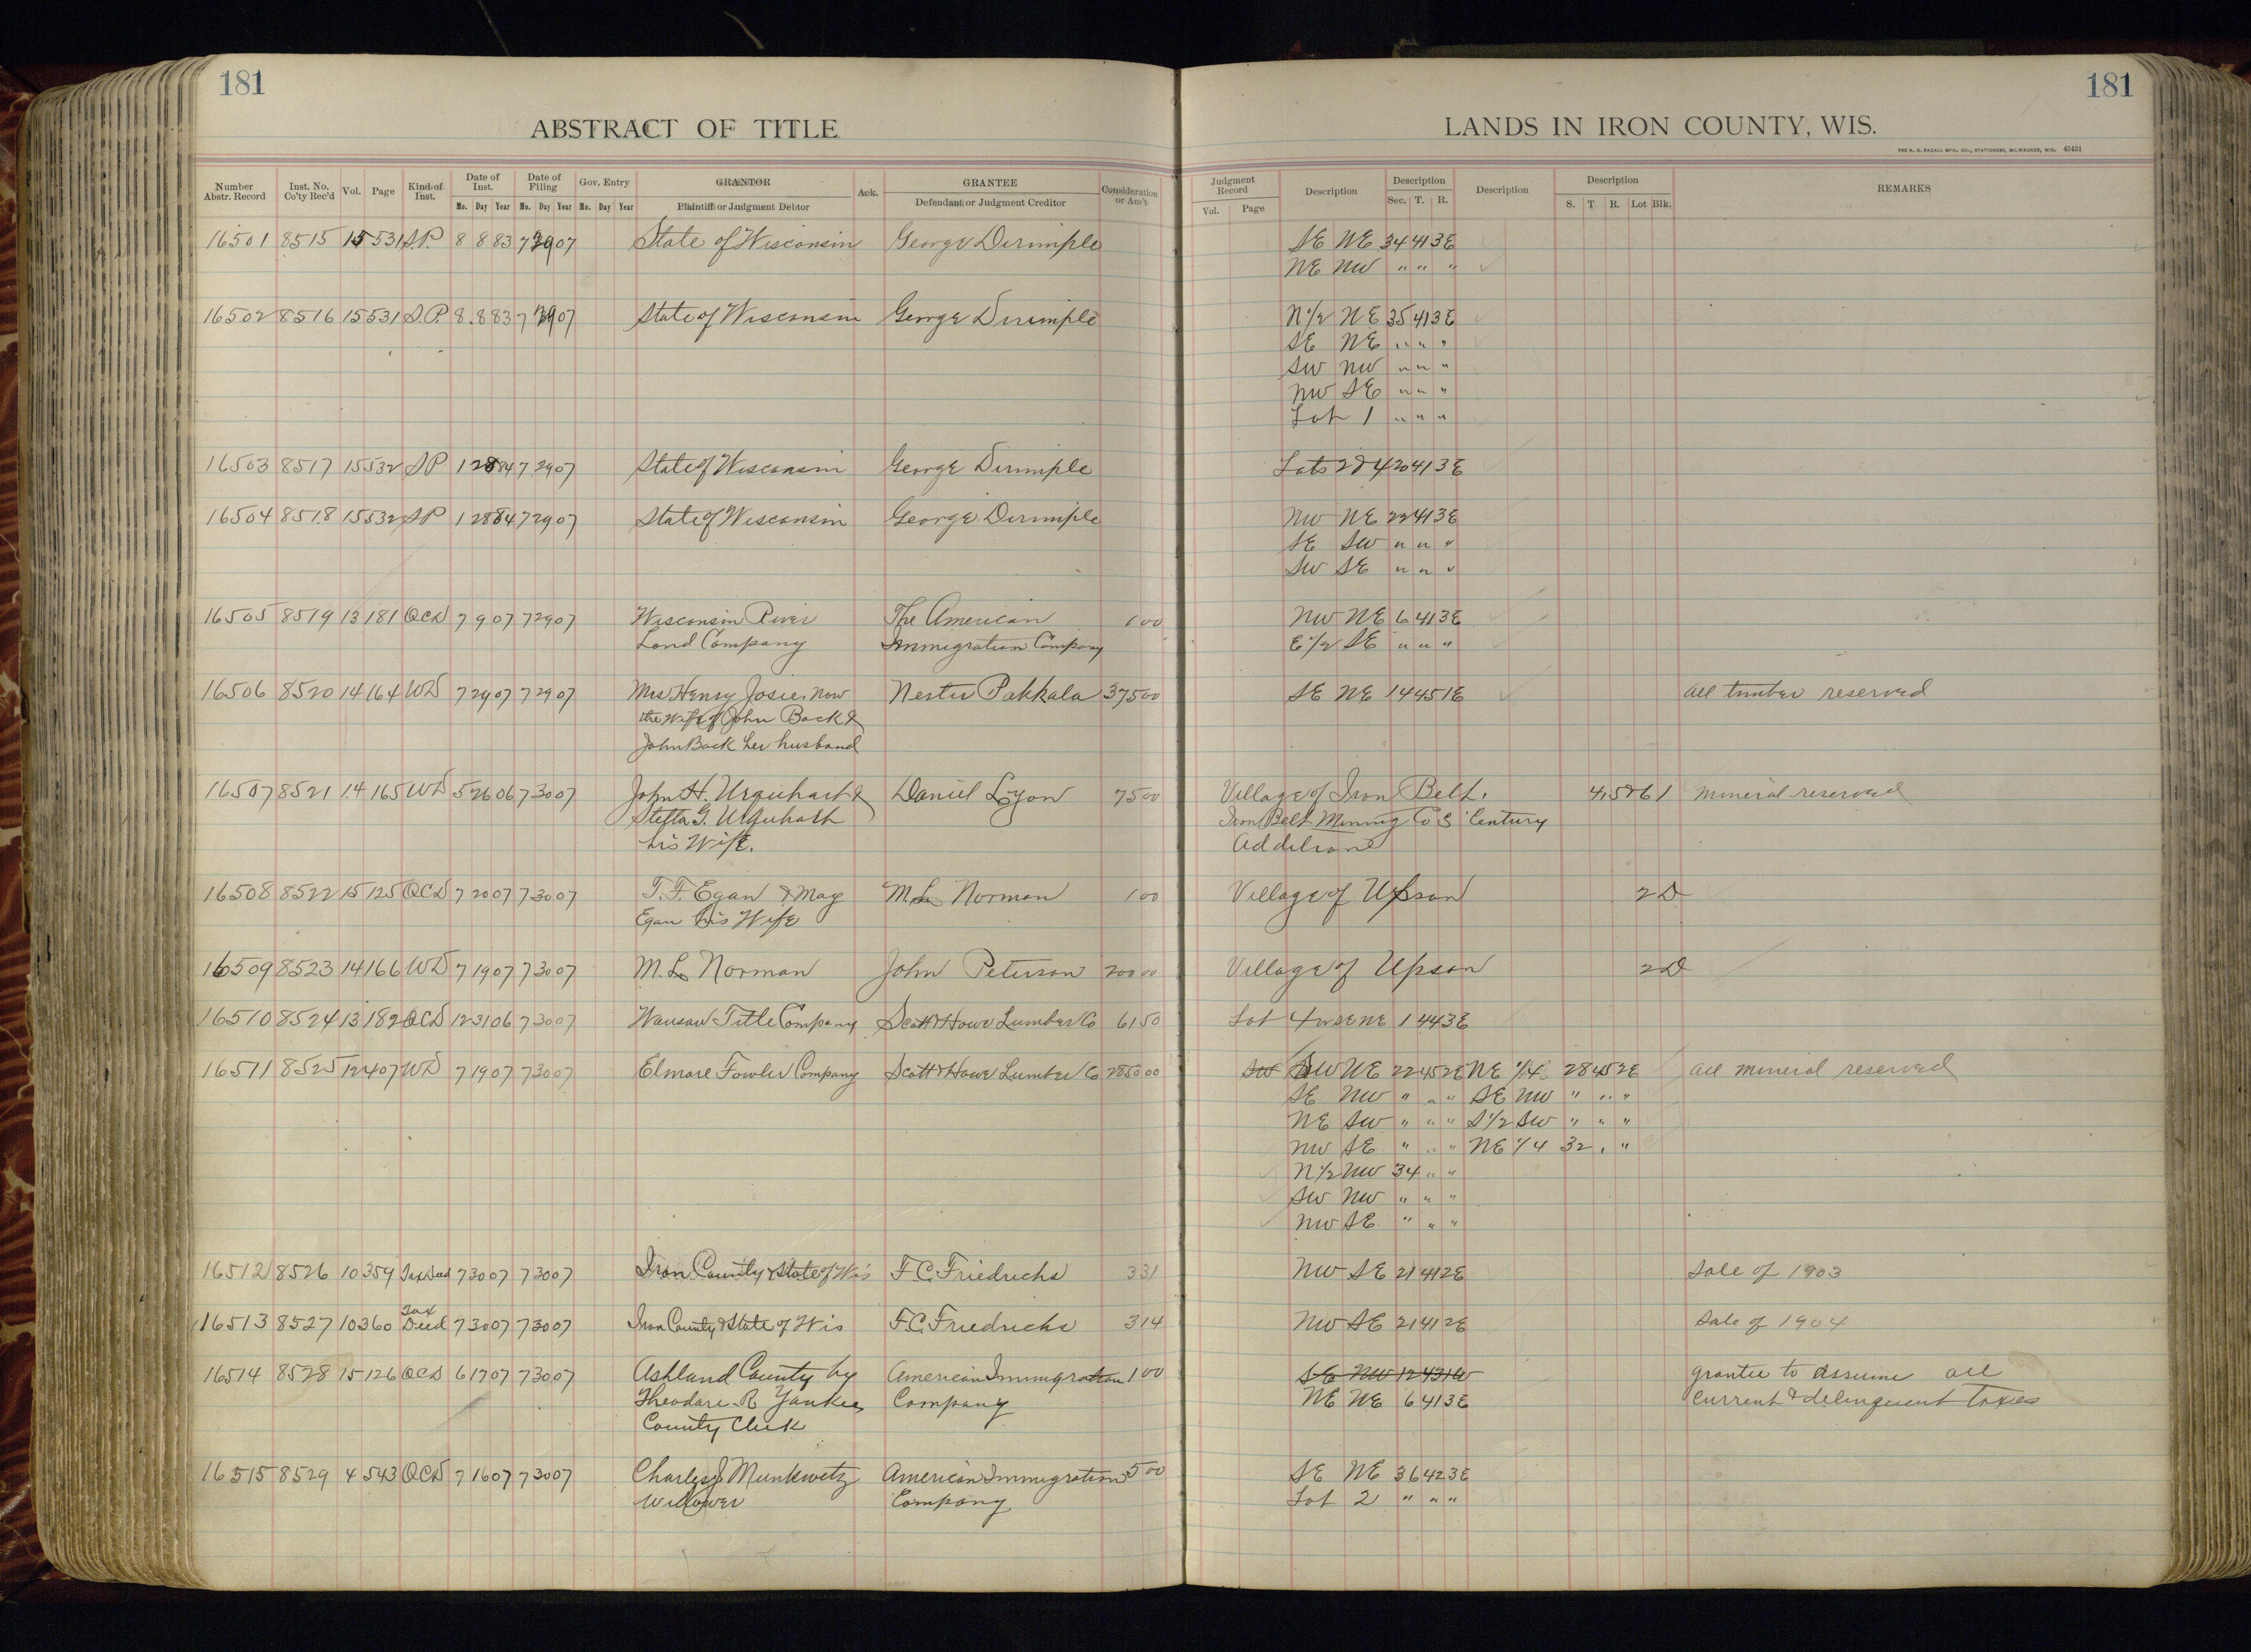 181
181
ABSTRACT OF TITLE
LANDS IN IRON COUNTY, WIS.
THE H. G. RAZALL MFG. CO., STATIONERS, MILWAUKEE, WIS. 45431
Number Abstr. Record Inst. No. Co'ty Rec'd Vol. Page Kind of Inst. Date of Inst. Mo. Day Year Date of Filing Mo. Day Year Gov. Entry Mo. Day Year GRANTOR Plaintiff or Judgment Debtor Ack. GRANTEE Defendant or Judgment Creditor Consideration or Am't
Judgment Record Vol. Page Description Description Sec. T. R. Description Description S. T. R. Lot Blk. REMARKS
16501 8515 15 531 S.P. 8 8 83 7 29 07 State of Wisconsin George Dirimple SE NE 34 41 3E
NE NW " " "
16502 8516 15 531 S.P. 8 8 83 7 29 07 State of Wisconsin George Dirimple N 1/2 NE 35 41 3E
SE NE " " "
SW NW " " "
NW SE " " "
Lot 1 " " "
16503 8517 15 532 SP 1 28 84 7 29 07 State of Wisconsin George Dirimple Lots 2 & 4 20 41 3E
16504 8518 15 532 SP 1 28 84 7 29 07 State of Wisconsin George Dirimple NW NE 22 41 3E
SE SW " " "
SW SE " " "
16505 8519 13 181 QCD 7 9 07 7 29 07 Wisconsin River The American 1 00 NW NE 6 41 3E
Land Company Immigration Company E 1/2 SE " " "
16506 8520 14 164 WD 7 29 07 7 29 07 Mrs Henry Josie, now Nester Pakkala 375 00 SE NE 14 45 1E all timber reserved
the wife of John Back &
John Back her husband
16507 8521 14 165 WD 5 26 06 7 30 07 John H. Urquhart & Daniel Lyon 75 00 Village of Iron Belt. 4, 5 & 6 1 mineral reserved
Stella G. Urquhart Iron Belt Mining Co's Century
his Wife. Additional
16508 8522 15 125 QCD 7 20 07 7 30 07 T. F. Egan & May M. L. Norman 1 00 Village of Upson 2 D
Egan his Wife
16509 8523 14 166 WD 7 19 07 7 30 07 M. L. Norman John Peterson 200 00 Village of Upson 2 D
16510 8524 13 182 QCD 12 31 06 7 30 07 Wausau Title Company Scott & Howe Lumber Co 61 50 Lot 4 or SE NE 1 44 3E
16511 8525 12 407 WD 7 19 07 7 30 07 Elmore Fowler Company Scott & Howe Lumber Co 2850 00 SW SW NE 22 45 2E NE 1/4 28 45 2E all mineral reserved
SE NW " " " SE NW " " "
NE SW " " " S 1/2 SW " " "
NW SE " " " NE 1/4 32 " "
N 1/2 NW 34 " "
SW NW " " "
NW SE " " "
16512 8526 10 359 Tax Deed 7 30 07 7 30 07 Iron County & State of Wis F. C. Friedrichs 3 31 NW SE 21 41 2E Sale of 1903
16513 8527 10 360 Tax Deed 7 30 07 7 30 07 Iron County & State of Wis F. C. Friedrichs 3 14 NW SE 21 41 2E Sale of 1904
16514 8528 15 126 QCD 6 17 07 7 30 07 Ashland County by American Immigration 1 00 SE NW 12 43 1W grantee to assume all
Theodore R Yankee Company NE NE 6 41 3E current & delinquent taxes
County Clerk
16515 8529 4 543 QCD 7 16 07 7 30 07 Charles J Munkwitz American Immigration 5 00 SE NE 36 42 3E
Widower Company Lot 2 " " "